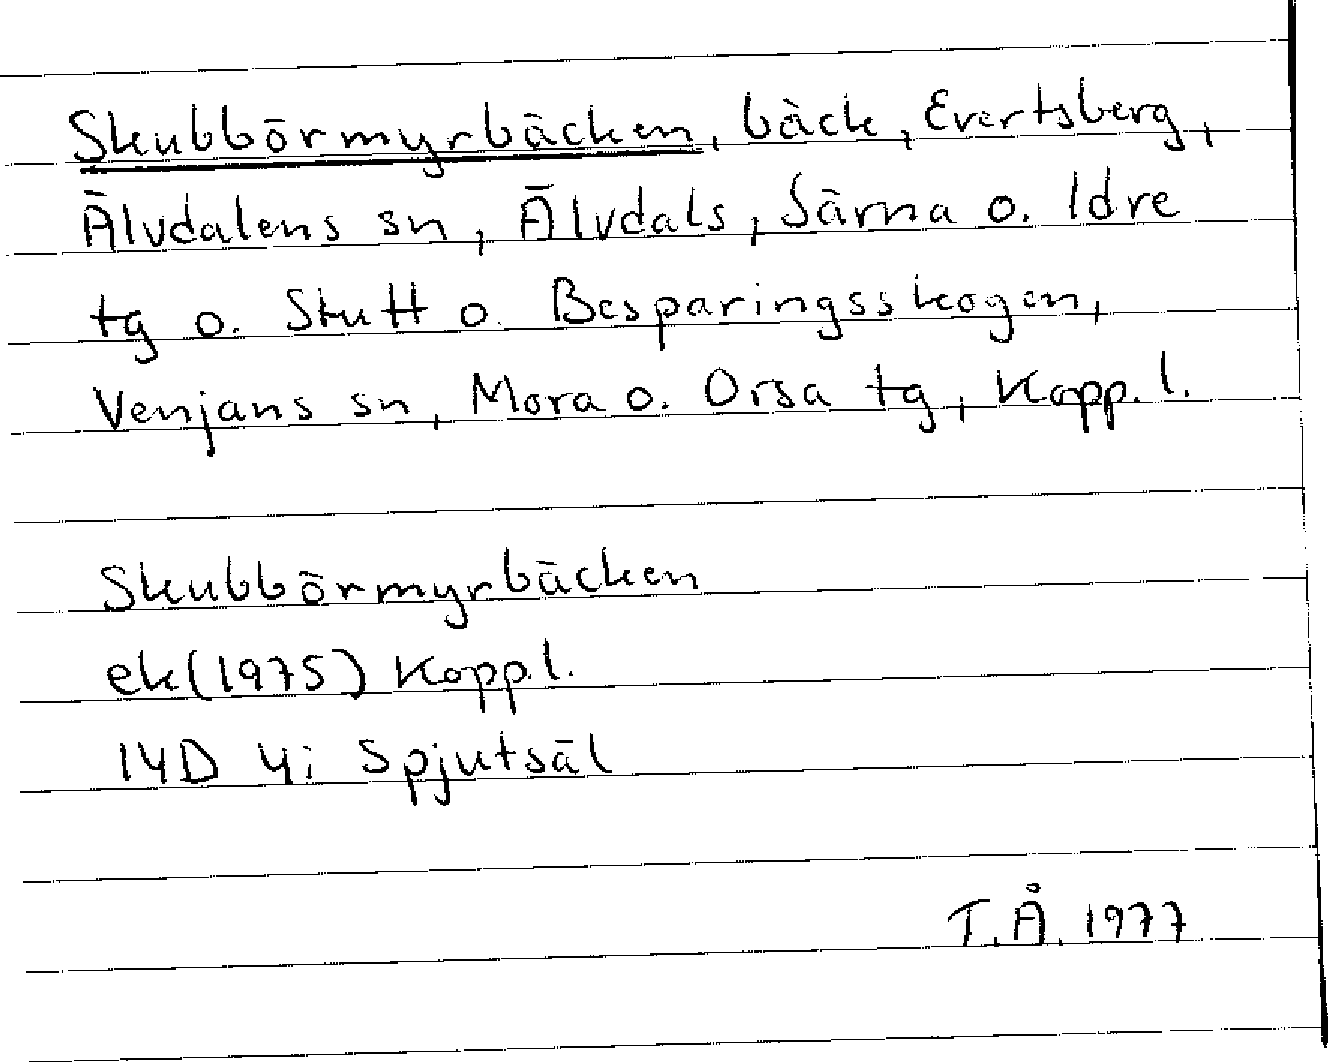 Skubbörmyrbäcken, bäck, Evertsberg,
Älvdalens sn, Älvdals, Särna o. Idre
tg o. Stutt o. Besparingsskogen,
Venjans sn, Mora o. Orsa tg, Kopp. l.
Skubbörmyrbäcken
ek(1975) Kopp.l.
14D 4i Spjutsäl
T.Å. 1977